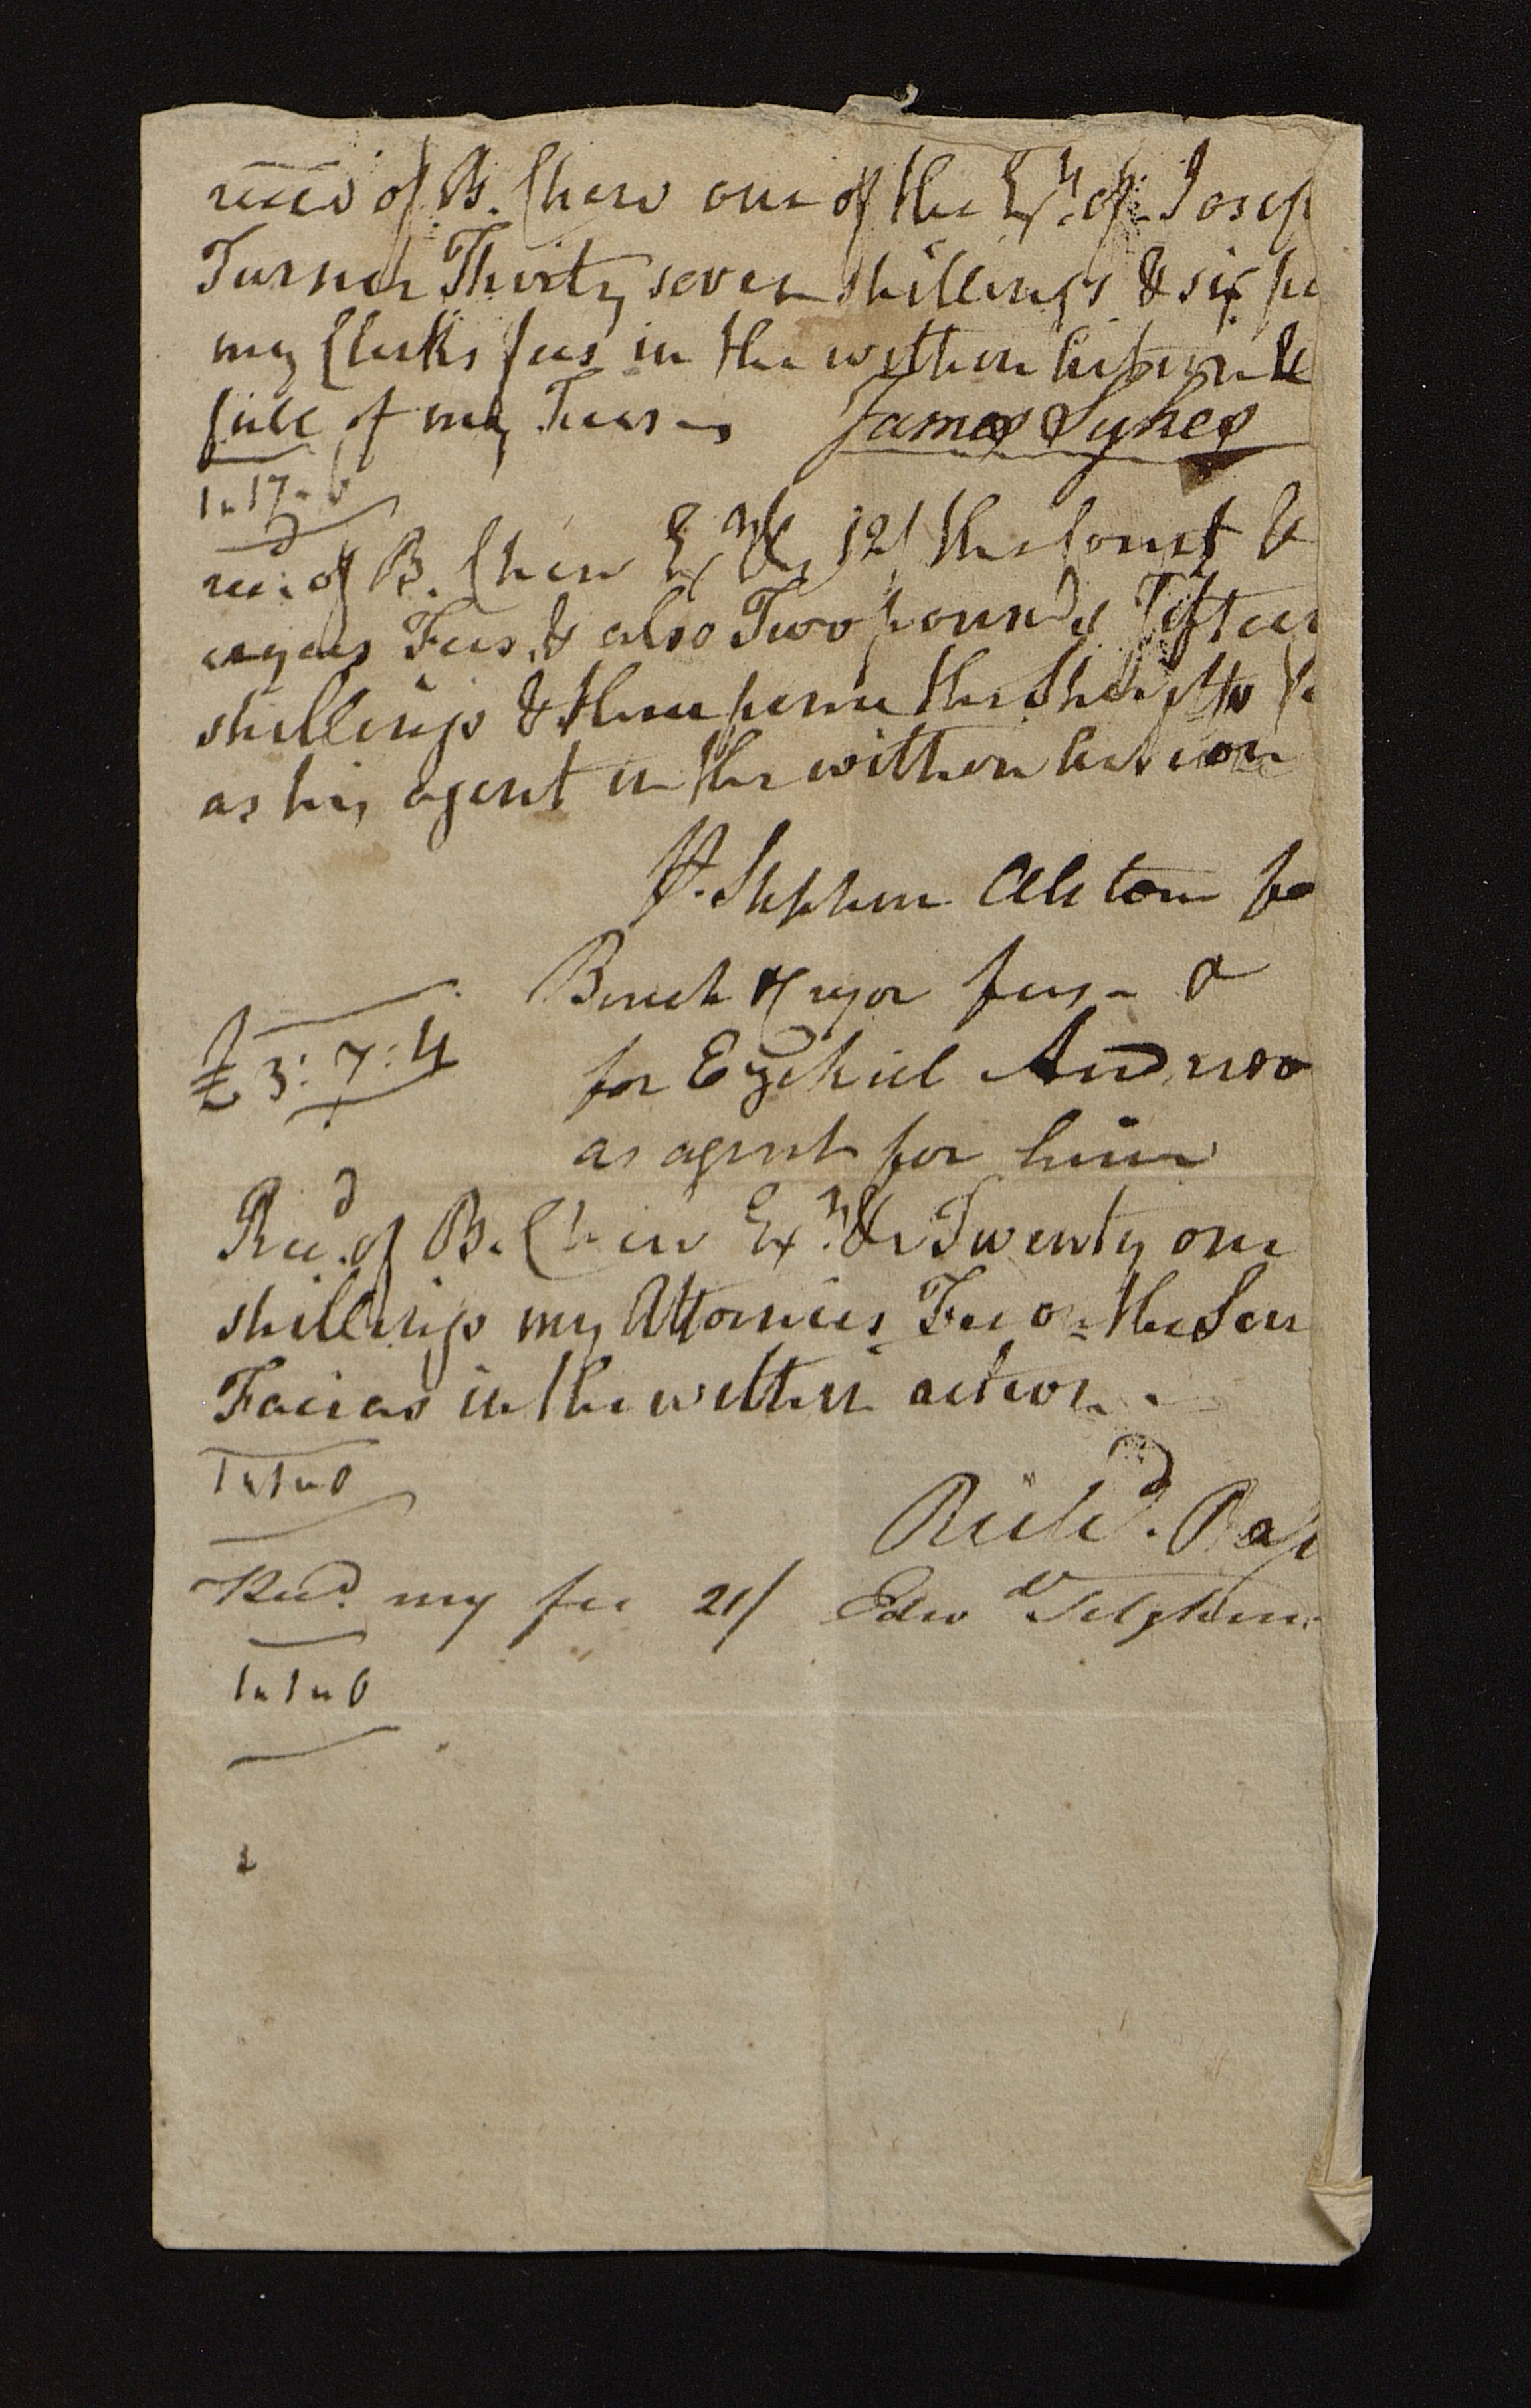 recd of B. Chew one of the Exrs. of Josep
Turner Thirty seven shillings & six pe
my Clerks fees in the within Action &
full of my Fees James Sykes
1 " 17 " 6
recd. of B. Chew Exr &c 12/ the Court &
Cryers Fees, & also Two pounds fifteen
shillings & three pence the Sheriffs fe
as his agent in the within action
Stephen Alston fo
Bench & Cryor fees &
£3:7:4
for Ezekiel Andrso
as agent for him
Recd. of B. Chew Exr. &c Twenty one
shillings my Attornies Fee on the Scire
Facias in the within action.
1 " 1 " 0
Richd. Bas
Recd. my fee 21/ Edwd Tilghman
1 " 1 " 0